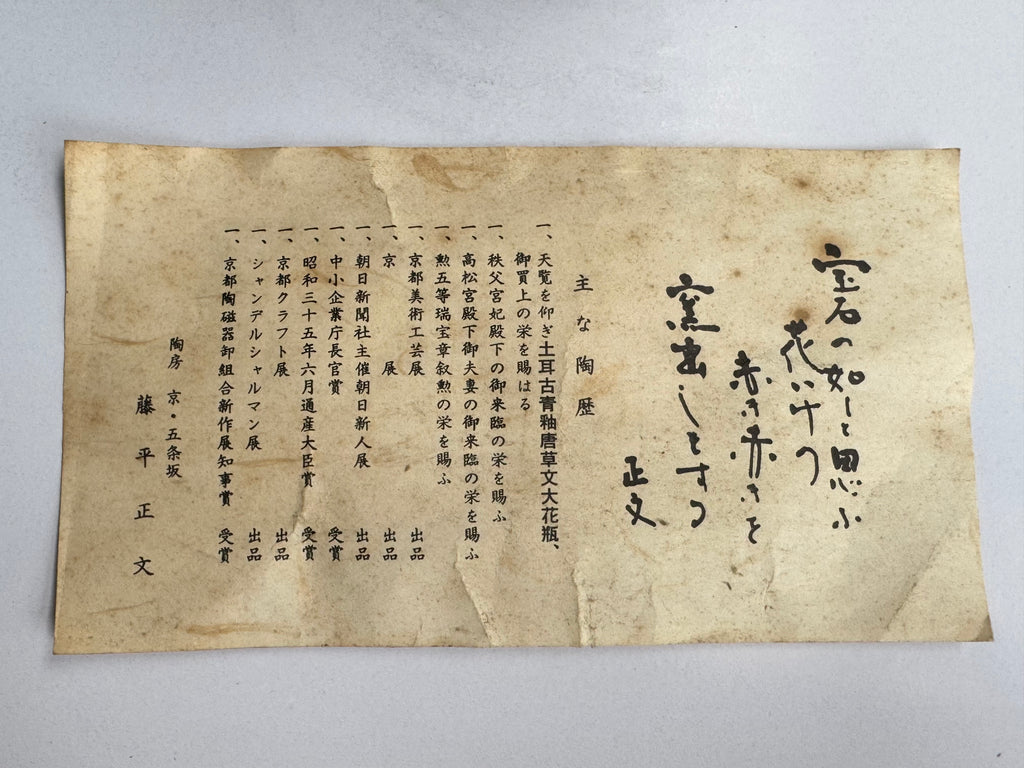 宝石の如しと思ふ
花いけの
赤き赤きを
窯出しをする
正文
主な陶歴
一、天覧を仰ぎ土耳古青釉唐草文大花瓶、
御買上の栄を賜はる
一、秩父宮妃殿下の御来臨の栄を賜ふ
一、高松宮殿下御夫妻の御来臨の栄を賜ふ
一、勲五等瑞宝章叙勲の栄を賜ふ
一、京都美術工芸展 出品
一、京 展 出品
一、朝日新聞社主催朝日新人展 出品
一、中小企業庁長官賞 受賞
一、昭和三十五年六月通産大臣賞 受賞
一、京都クラフト展 出品
一、シャンデルシャルマン展 出品
一、京都陶磁器卸組合新作展知事賞 受賞
陶房 京・五条坂
藤平正文